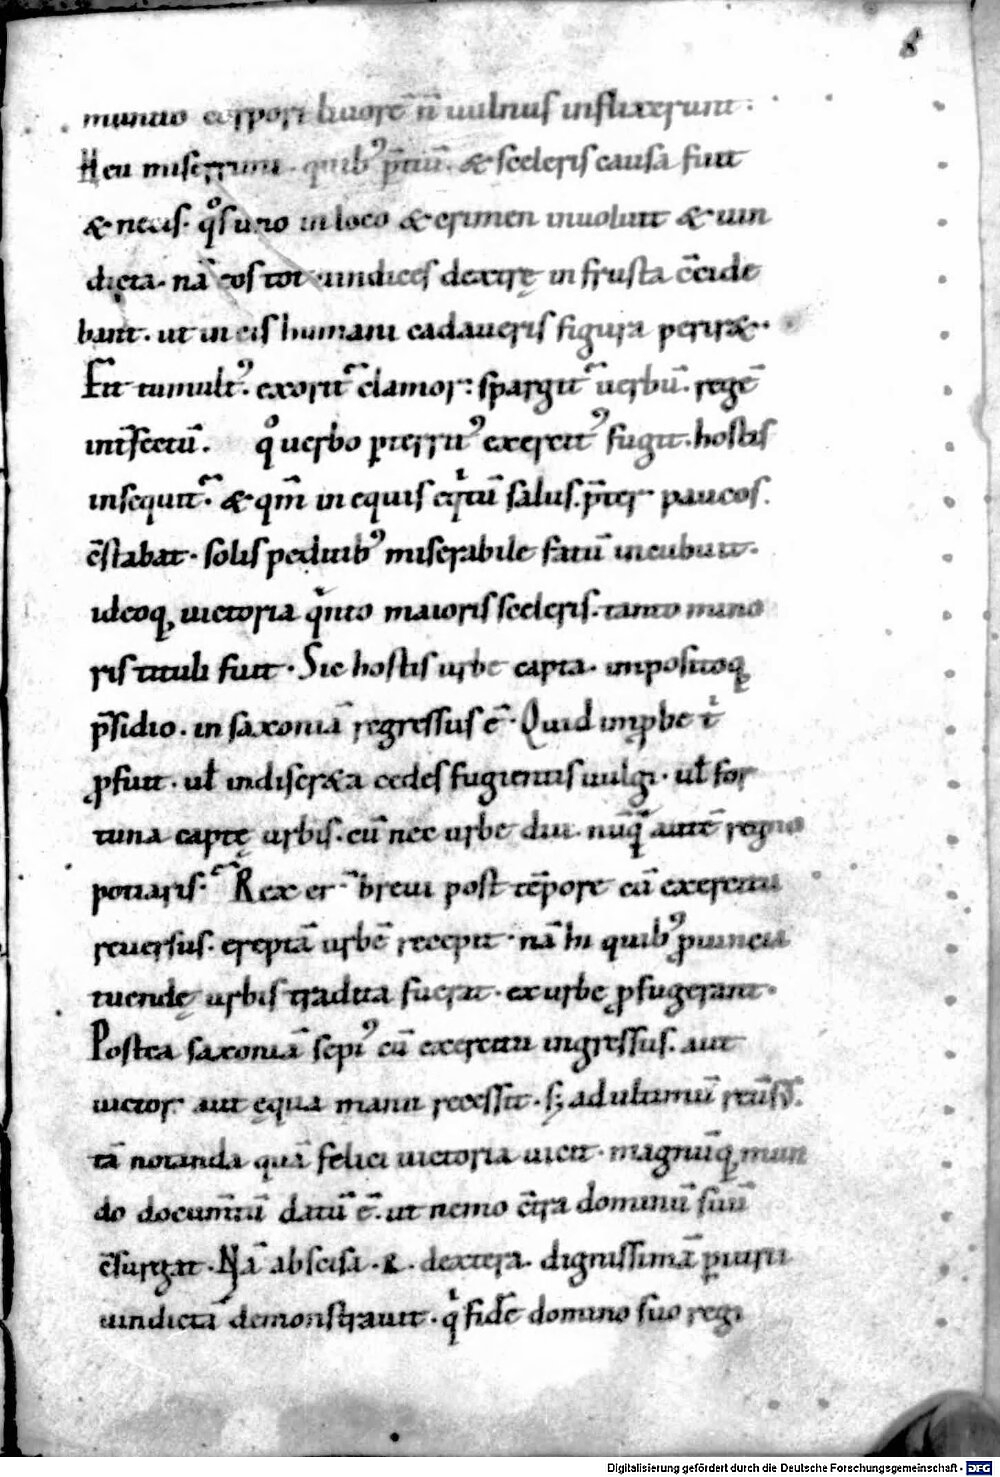 8
mortuo corpori liuorē ñ uulnus inflixerunt.
Heu miserrimi. quibꝰ p̄tiū. & sceleris causa fuit
& necis. qͦs uno in loco & crimen inuoluit & uin
dicta. nā eos tot uindices dextrę in frusta c̄cide
bant. ut in eis humani cadaueris figura periret.
Fit tumultꝰ. exorit᷑ clamor: spargit᷑ uerbū. regē
int̄fectū. qͦ uerbo ꝑterritꝰ exercitꝰ fugit. hostis
insequit᷑. & qm̄ in equis eqͥtū salus. p̄ter paucos.
c̄stabat. solis peditibꝰ miserabile fatū incubuit.
ideoq; uictoria qͣnto maioris sceleris. tanto mino
ris tituli fuit. Sic hostis urbe capta. impositoq;
p̄sidio. in saxoniā regressus ē. Quid imꝓbe tͥ
ꝓfuit. ul̄ indiscreta cedes fugientis uulgi. ul̄ for
tuna captę urbis. cū nec urbe diu. nūqͣ̄ autē regno
potiaris. Rex er᷑ breui post tēpore cū exercitu
reuersus. ereptā urbē recepit. nā hi quibꝰ ꝓuincia
tuendę urbis tradita fuerat. ex urbe ꝓfugerant.
Postea saxoniā sepiꝰ cū exercitu ingressus. aut
uictor aut ęqua manu recessit. s; ad ultimū reūsꝰ.
tā notanda quā felici uictoria uicit. magnūq; mun
do documn̄tū datū ē. ut nemo c̄tra dominū suū
c̄surgat. Nā abscisa. R. dextera. dignissimā ꝑiurii
uindictā demonstrauit. qͥ fidē domino suo regi
Digitalisierung gefördert durch die Deutsche Forschungsgemeinschaft - DFG